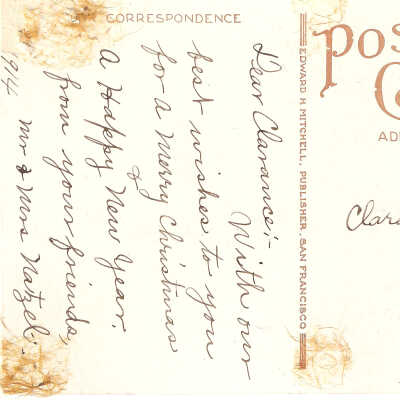 CORRESPONDENCE
Dear Clarance:- With our
best wishes to you
for a Merry Christmas
&
a Happy New Year.
from your friends,
Mr & Mrs Natzel.
1914
EDWARD H. MITCHELL, PUBLISHER, SAN FRANCISCO
pos
C
AD
Clar